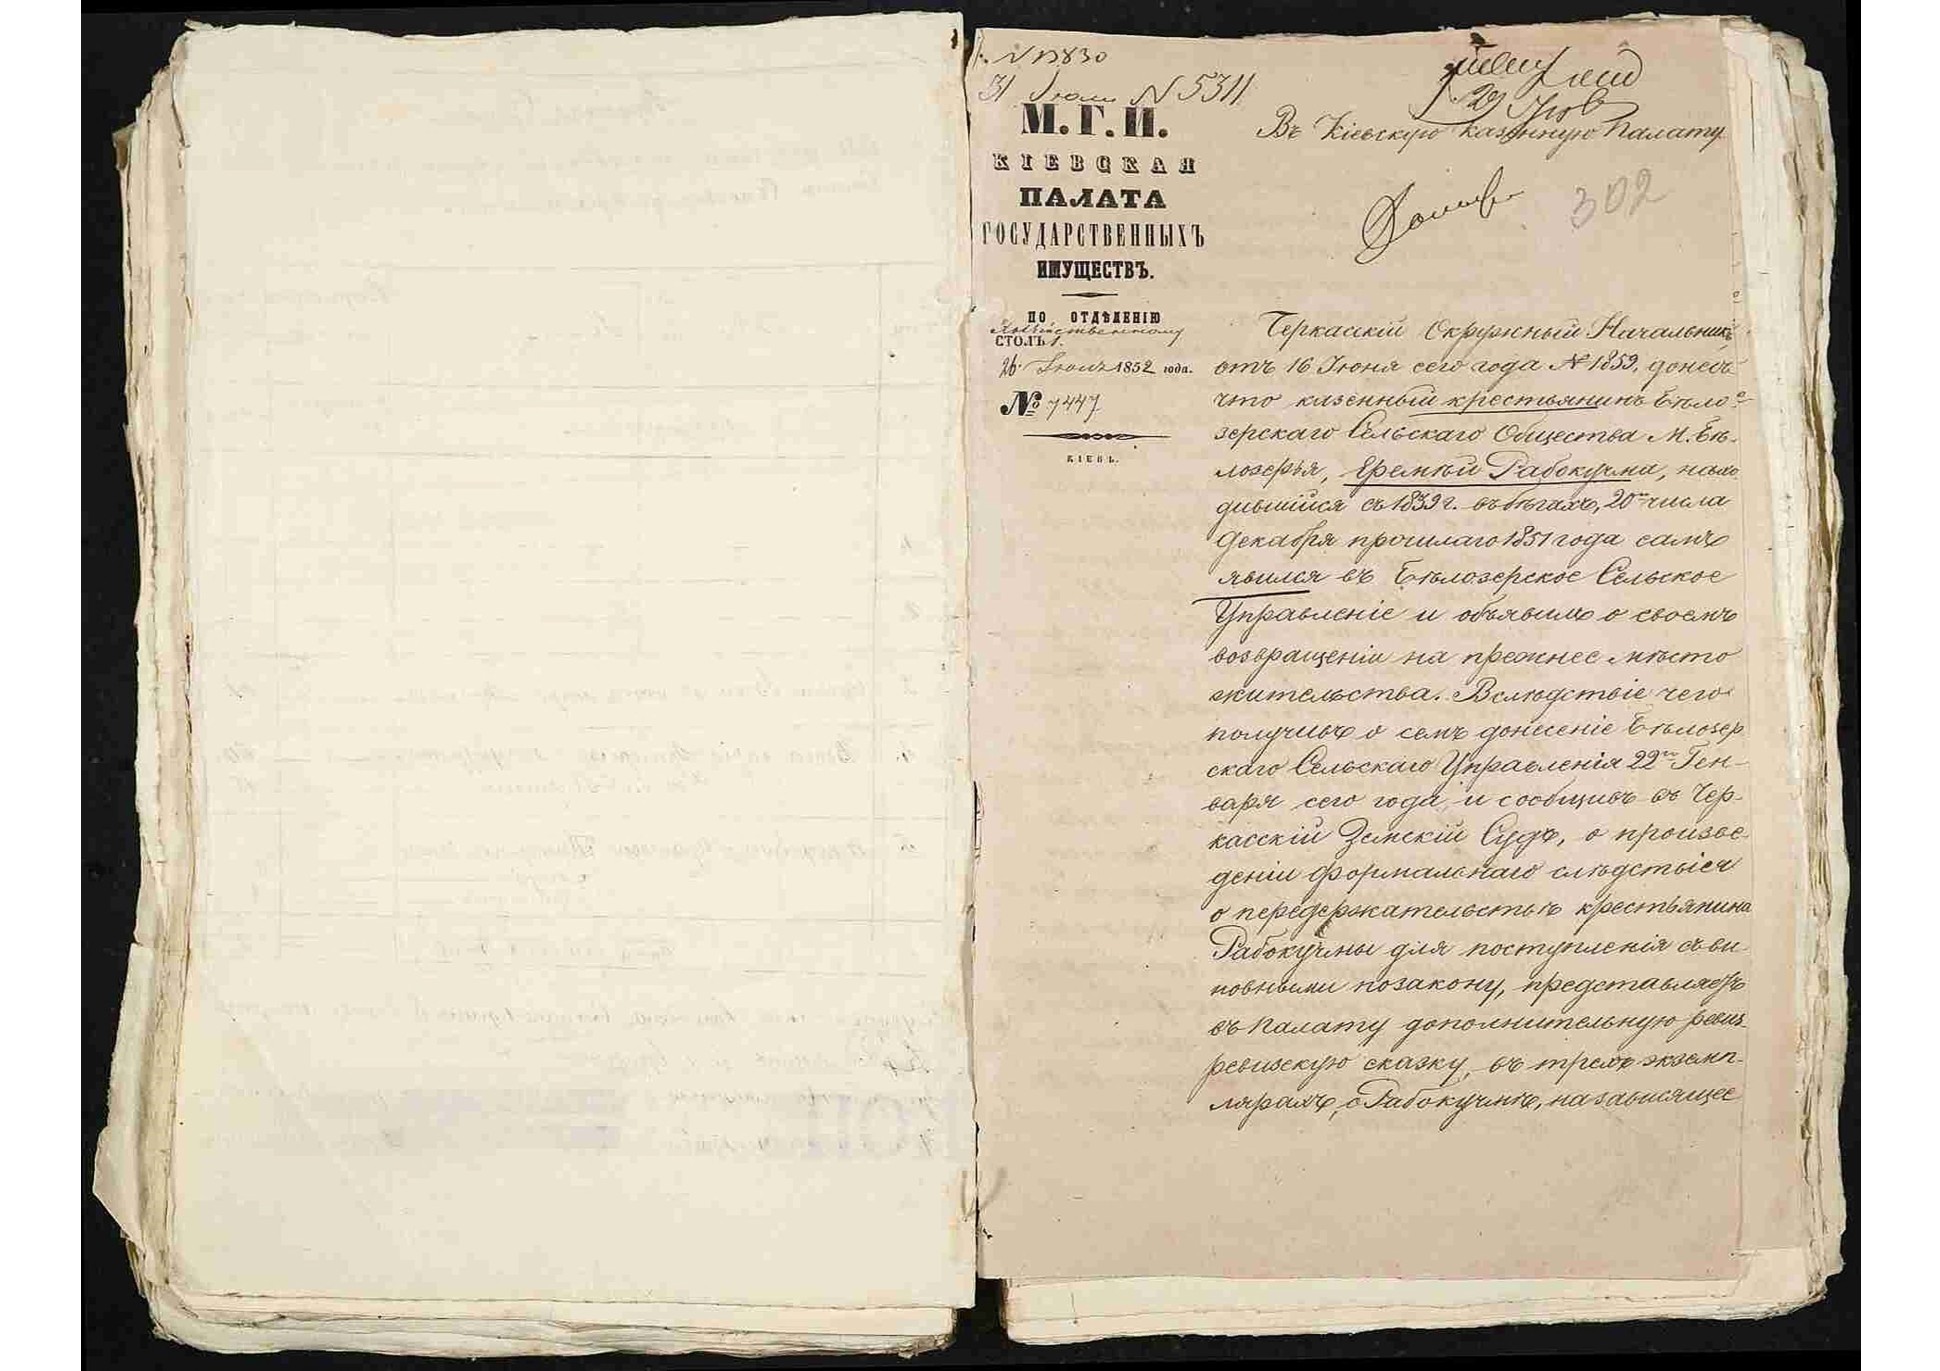 N 13830
31 Июля N 5311
М.Г.И.
КІЕВСКАЯ
ПАЛАТА
ГОСУДАРСТВЕННЫХЪ
ИМУЩЕСТВЪ.
ПО ОТДѢЛЕНІЮ
Хозяйственному
СТОЛЪ 1.
26 Іюля 1852 года.
№ 7447
КІЕВЪ.
Въ Кіевскую казенную Палату
302
Черкаскій Окружный Начальникъ
отъ 16 Іюня сего года № 1859, донесъ
что казенный крестьянинъ Бѣло-
зерскаго Сельскаго Общества М. Бѣ-
лозерья, Еремѣй Рабокучма, нахо
дившійся съ 1839 г. въ бѣгахъ, 20го числа
Декабря прошлаго 1851 года самъ
явился въ Бѣлозерское Сельское
Управленіе и объявилъ о своемъ
возвращеніи на прежнее мѣсто
жительства. Вслѣдствіе чего
получивъ о семъ донесеніе Бѣлозер
скаго Сельскаго Управленія 22го Ген-
варя сего года и сообщивъ въ Чер-
касскій Земскій Судъ, о произве-
деніи формальнаго слѣдствія
о передержательствѣ крестьянина
Рабокучмы для поступленія съ ви
новными по закону, представляетъ
въ Палату дополнительную ревиз-
ревизскую сказку, въ трехъ экземп-
лярахъ, о Рабокучмѣ, на зависящее